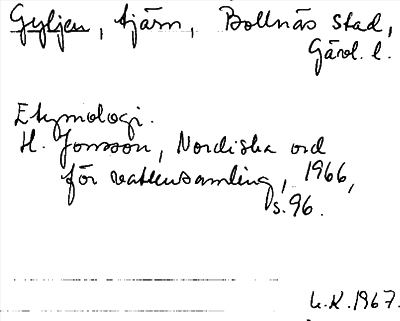 Gyljen, tjärn, Bollnäs stad,
Gärd. l.
Etymologi.
H. Jonsson, Nordiska ord
för vattensamling, 1966,
s. 96.
L.K. 1967.